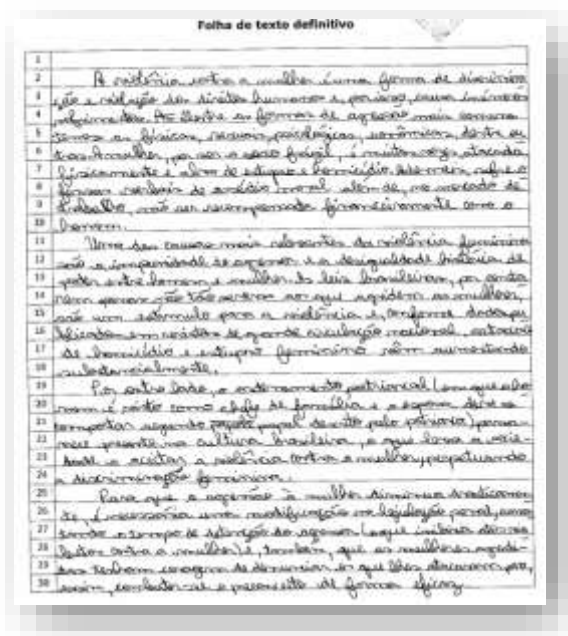 Folha de texto definitivo
1
2 A violência contra a mulher é uma forma de discrimina
3 ção e violação dos direitos humanos e, por isso, causa inúmeros
4 dentre as formas de agressão mais comuns
5 temos as físicas, sexuais, psicológicas, econômicas, dentre ou
6 tras. A mulher, por ser o sexo frágil, é muitas vezes atacada
7 fisicamente e alvo de estupro e homicídio. Ademais, sofre
8 de assédio moral, além de, no mercado de
9 trabalho, não ser recompensada financeiramente como o
10 homem.
11 Uma das causas mais relevantes da violência feminina
12 são a impunidade do agressor e a desigualdade histórica de
13 poder entre homens e mulheres. As leis brasileiras, por
14 penas não tão severas aos que agridem as mulheres,
15 são um estímulo para a violência e, conforme dados pu
16 blicados em de grande circulação nacional,
17 de homicídio e estupro feminino vêm aumentando
18 substancialmente.
19 Por outro lado, o patriarcal (em que o ho
20 mem é visto como chefe de família e a esposa deve se
21 comportar segundo papel descrito pelo patriarca) perma
22 nece presente na cultura brasileira, o que leva a socie
23 dade a aceitar a violência contra a mulher, perpetuando
24 a discriminação feminina.
25 Para que a agressão à mulher diminua drasticamen
26 te, é necessária uma modificação na legislação penal, aumen
27 tando o tempo de detenção do agressor (o que inibiria atos vio
28 lentos contra a mulher) e, também, que as mulheres agredi
29 das tenham coragem de denunciar os que lhes atacaram para,
30 assim, combater-se o preconceito de forma eficaz.